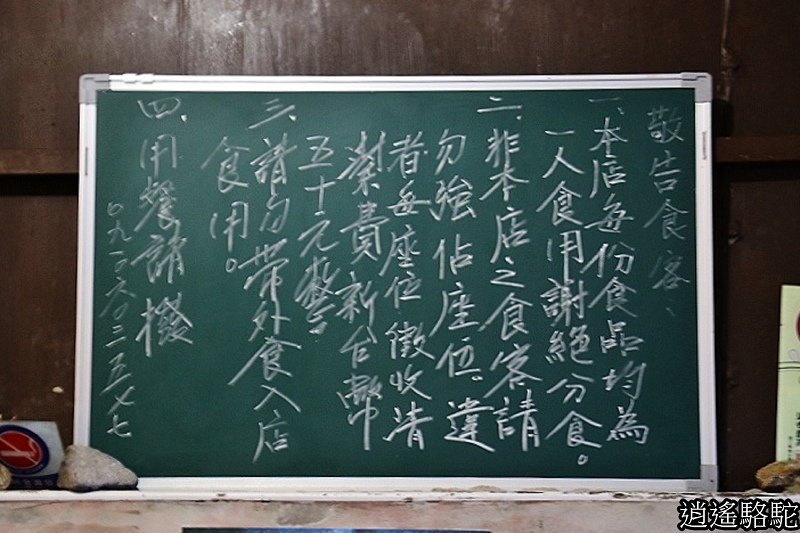 敬告食客:
一、本店每份食品均為
一人食用謝絕分食。
二、非本店之食客請
勿強佔座位。違
者每座位徵收清
潔費新台幣
五十元整。
三、請勿帶外食入店
食用。
四、用餐請撥
逍遙駱駝